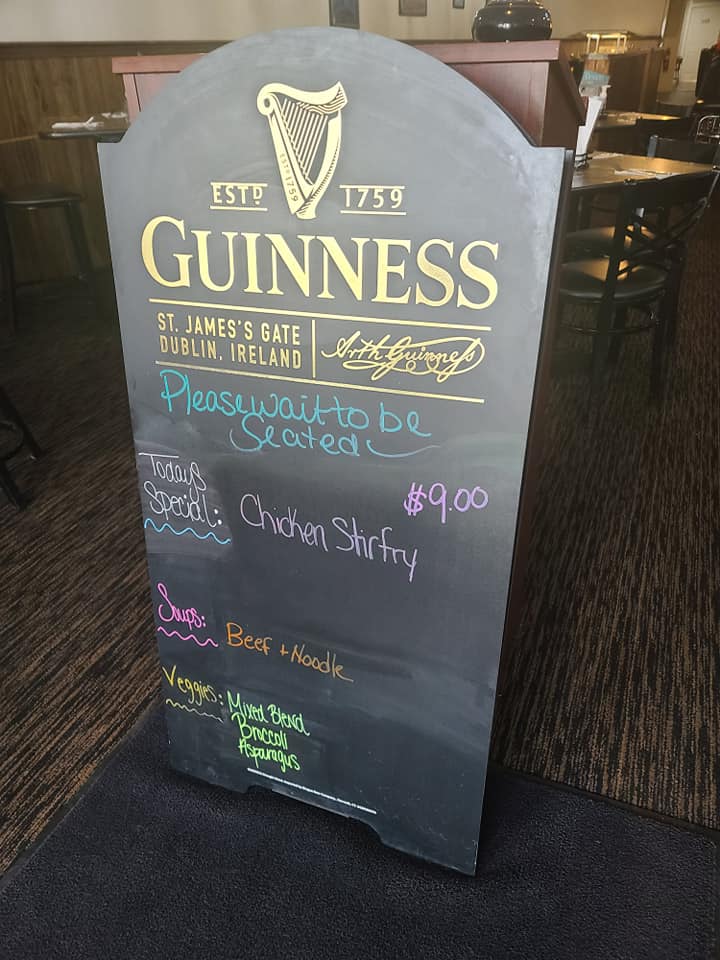 ESTD 1759
GUINNESS
ST. JAMES'S GATE
DUBLIN, IRELAND
Arth Guinness
Please wait to be
Seated
Todays
Special:
$9.00
Chicken Stirfry
Soups:
Beef + Noodle
Veggies:
Mixed Blend
Broccoli
Asparagus